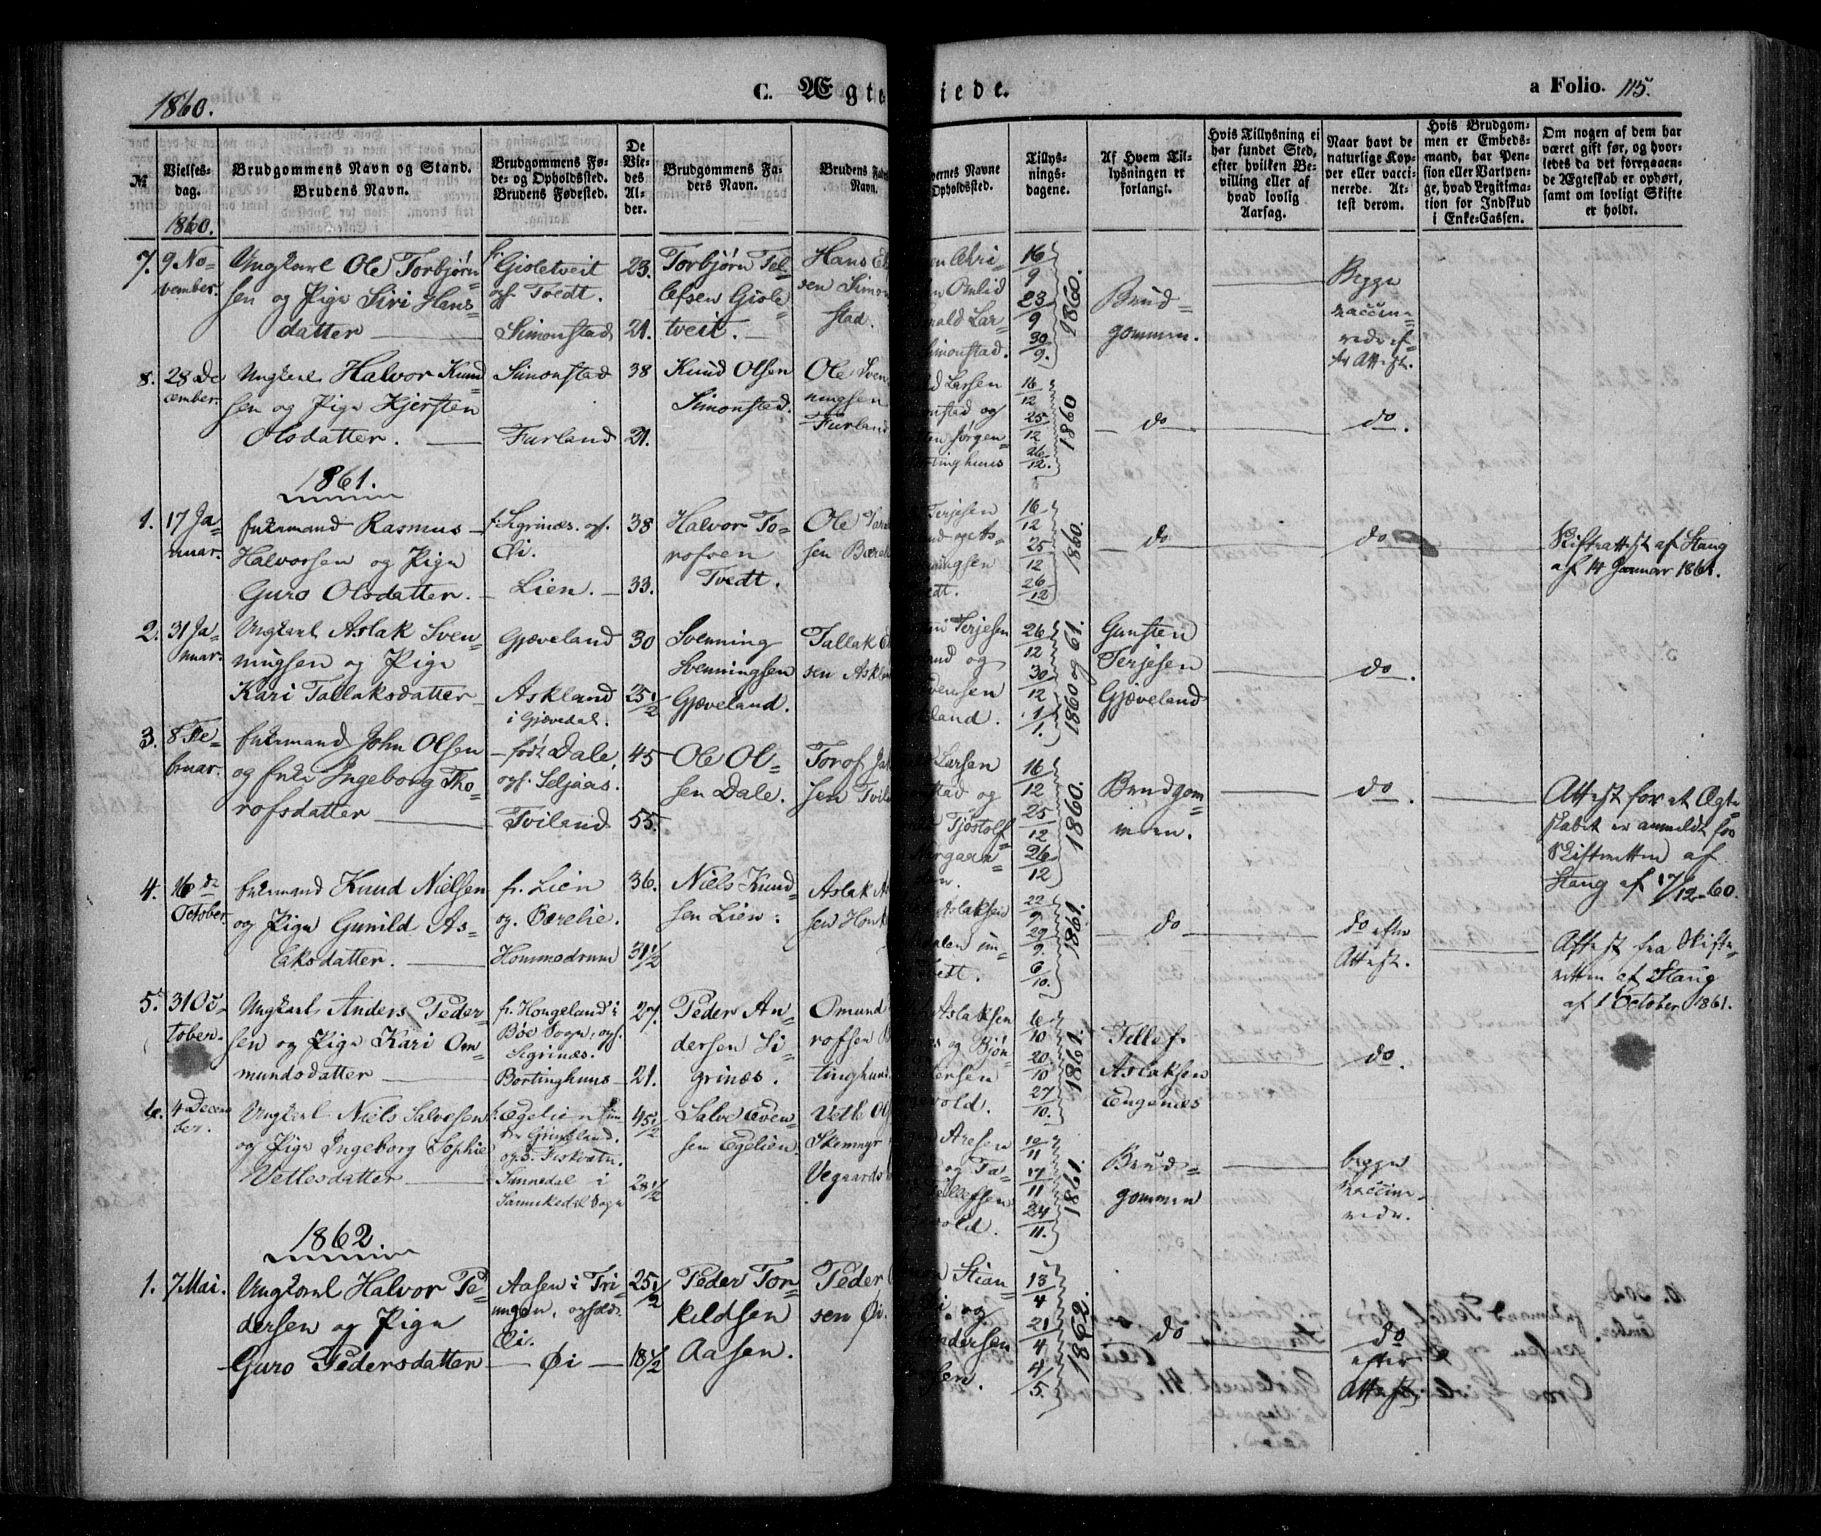 1860.
C. Ægte
iede.
a Folio. 115.
№
Vielses-
dag.
Brudgommens Navn og Stand.
Brudens Navn.
Brudgommens Fø-
de- og Opholdssted.
Brudens Fødested.
De
Vie-
des
Al-
der.
Brudgommens Fa-
ders Navn.
Brudens
Navn.
ernes Navne
Opholdssted.
Tillys-
nings-
dagene.
Af Hvem Til-
lysningen er
forlangt.
Hvis Tillysning ei
har fundet Sted,
efter hvilken Be-
villing eller af
hvad lovlig
Aarsag.
Naar havt de
naturlige Kop-
per eller vacci-
nerede. At-
test derom.
Hvis Brudgom-
men er Embeds-
mand, har Pen-
sion eller Vartpen-
ge, hvad Legitima-
tion for Indskud
i Enke-Cassen.
Om nogen af dem har
været gift før, og hvor-
ledes da det foregaaen-
de Ægteskab er ophørt,
samt om lovligt Skifte
er holdt.
1860.
7. 9 No-
vember.
Ungkarl Ole Torbjørn-
sen og Pige Siri Hans-
datter
f. Gioletveit
og. Tvedt.
Simonstad
23.
21.
Torbjørn Tel-
lefsen Giole-
tveit.
Hans
sen Simon
stad.
Omlid
rald Lar-
Simonstad.
16/9
23/9
30/9.
1860.
Brud-
gommen.
Begge
vaccine-
rede ef-
ter Attest.
8. 28 De
cember.
Ungkarl Halvor Knud-
sen og Pige Kjersten
Olsdatter.
Simonstad
Furland
38
21.
Knud Olsen
Simonstad.
Ole Sven
ningsen
Furland
Larsen
nstad og
Jørgen-
tinghuus
16/12
25/12
26/12.
1860
do
do.
1861.
1. 17 Ja-
nuar.
Enkemand Rasmus
Halvorsen og Pige
Guro Olsdatter.
f. Sigrinæs. og.
Øi.
Lien.
38
33.
Halvor To-
rofsen
Tvedt.
Ole
sen Bærel
Terjesen
nd og As-
ningsen
edt.
16/12
25/12
26/12
1860.
do
do
Skifteattest af Stang
af 14 Januar 1861.
2. 31 Ja-
nuar.
Ungkarl Aslak Sven-
ningsen og Pige
Kari Tallaksdatter
Gjæveland
Askland
i Gjøvedal.
30
25 1/2
Svenning
Svenningsen
Gjæveland.
Tallak
sen Askla
Terjesen
and og
vensen
land.
26/12
30/12
1/1.
1860 og 61.
Gunsten
Terjesen
Gjæveland
do.
3. 8 Fe-
bruar.
Enkemand John Olsen
og Enke Ingeborg Tho-
rofsdatter
født Dale,
og. Seljaas.
Tviland
45
55.
Ole Ol-
sen Dale.
Torof
sen Tvil
Larsen
stad og
Tjostolf
16/12
25/12
26/12
1860.
Brudgom-
men.
do.
Attest for at Ægte-
skabet er anmeldt for
Skifteretten af
Stang af 17/12-60.
4. 16de
October
Enkemand Knud Nielsen
og Pige Gunild As-
laksdatter.
fr. Lien
og. Bærelie.
Hommedrum
36.
31 1/2
Niels Knud-
sen Lien.
Aslak
sen Hom
Aslaksen
22/9
29/9.
6/10.
1861.
do
do efter
Attest.
Attest fra Skifte-
retten af Stang
af 1 October 1861.
5. 31 Oc-
tober.
Ungkarl Anders Peder-
sen og Pige Kari Om-
mundsdatter
fr. Hougeland i
Bøe Sogn, og.
Sigrinæs.
Bortinghuus
27.
21.
Peder An-
dersen Si-
grinæs.
Omund
rofsen
tinghuus
Aslaksen
og Bjøn-
tersen
evold.
6/10
20/10
27/10.
1861.
Tellef
Aslaksen
Engenæs
do
6. 4 Decem-
ber.
Ungkarl Niels Salvesen
og Pige Ingeborg Sophie
Vettesdatter
f. Egelien un-
der Grimsland.
og. Fiskvatn.
Sannedal i
Sannikedal Sogn
45 1/2
28 1/2
Salve Even-
sen Egelien.
Veth
Skemmyr
Vegaards
Aresen
og Ta-
Tellefsen
vold.
10/11
17/11
24/11.
1861.
Brud-
gommen
begge
vaccine-
rede.
1862
1. 7 Mai.
Ungkarl Halvor Pe-
dersen og Pige
Guro Pedersdatter
Aasen i Tri-
ungen, opholder
Øi.
Øi
25 1/2
18 1/2
Peder Tor-
kildsen
Aasen.
Peder
sen Øi.
Stian-
og
edersen
13/4
21/4
4/5.
1862.
do
do
efter
Attest.